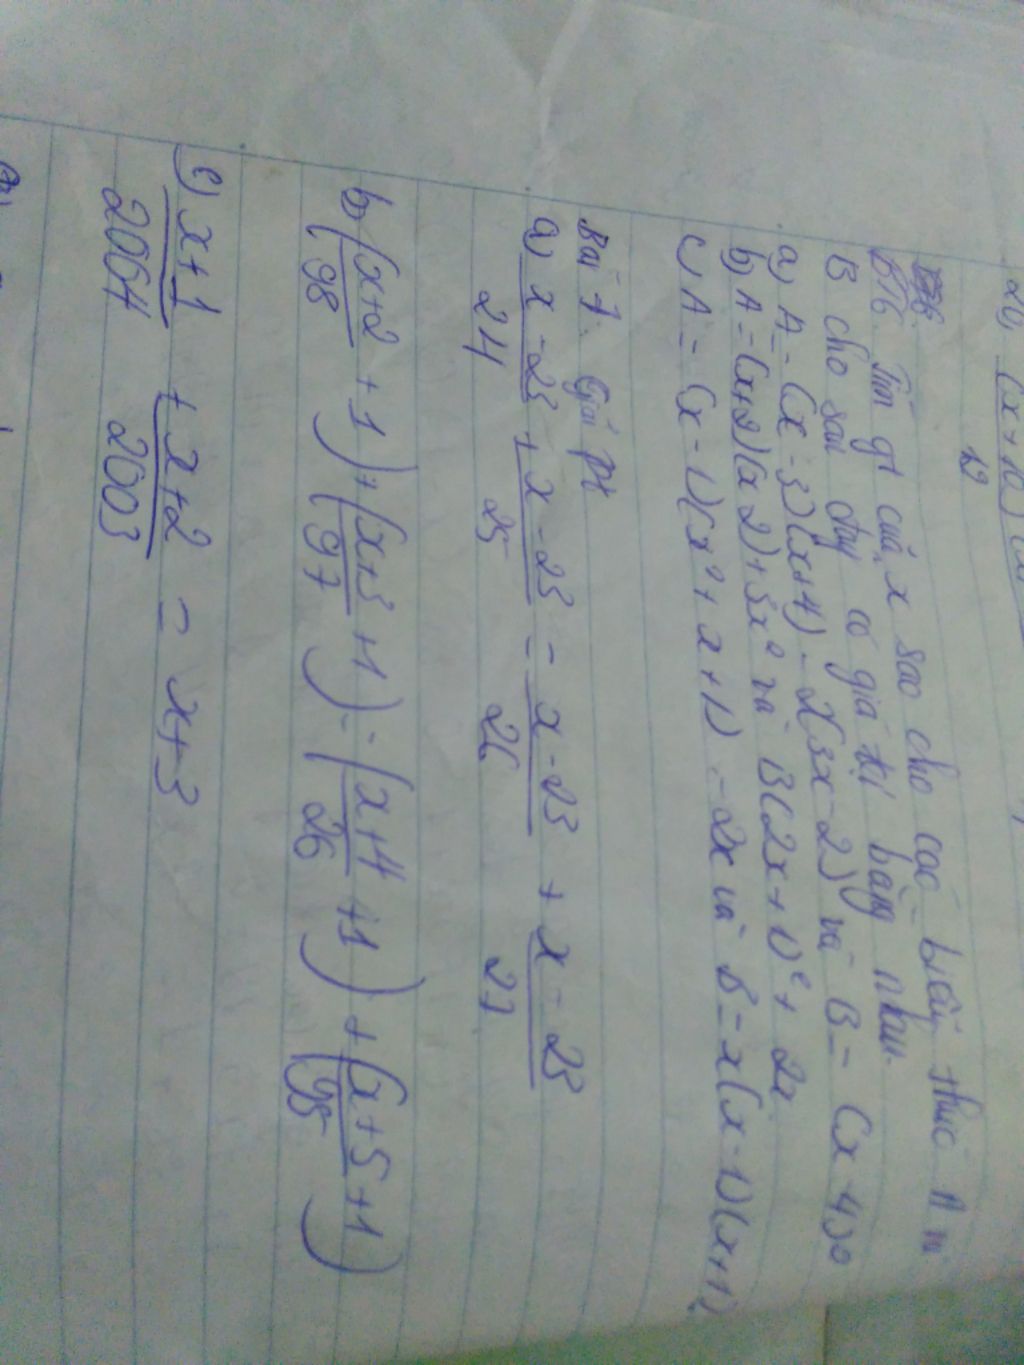 20, (x+10)
12
B16 Tìm gt của x sao cho các biểu thức A và
B cho sau đây có giá trị bằng nhau.
a) A = (x - 3)(x+4) - 2(3x-2) và B = (x 4)²
b) A = (x+2)(x 2)+3x² và B(2x+1)²+ 2x
c) A = (x - 1)(x²+ x +1) - 2x và B = x(x-1)(x+1)
Bài 7. Giải pt
a) x - 23 + x - 23 = x - 23 + x - 23
24 25 26 27
b, (x+2 + 1) + (x+3 +1) = (x+4 +1) + (x+5 +1)
98 97 96 95
c) x+1 + x+2 = x+3
2004 2003